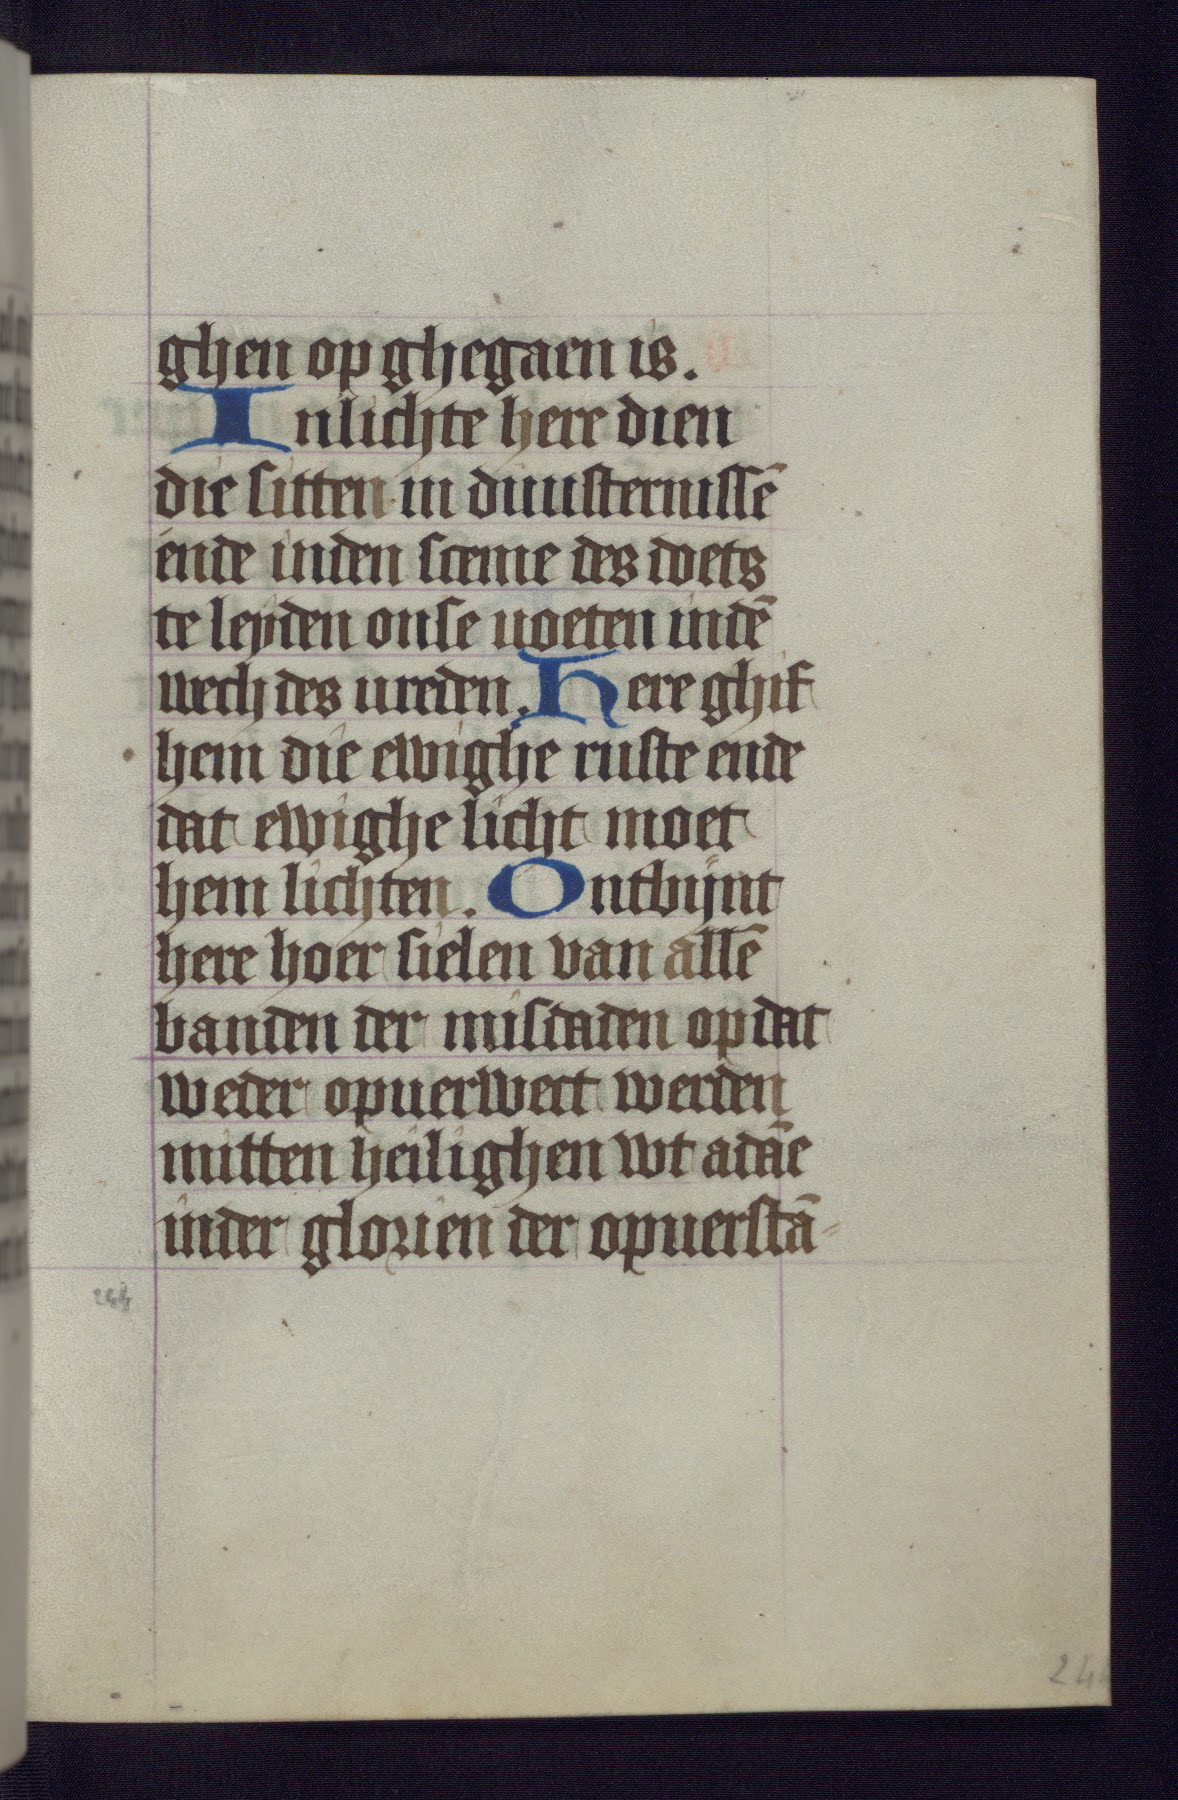 ghen op ghegaen is.
Inlichte here dien
die sitten in duusternissē
ende inden sceme des doets
te leyden onse uoeten indē
wech des ureden. Here ghif
hem die ewighe ruste ende
dat ewighe licht moet
hem lichten. Ontbijnt
here hoer sielen van allē
banden der misdaden opdat
weder opuerwect werden
mitten heilighen wt adāe
inder glorien der opuerstā-
244